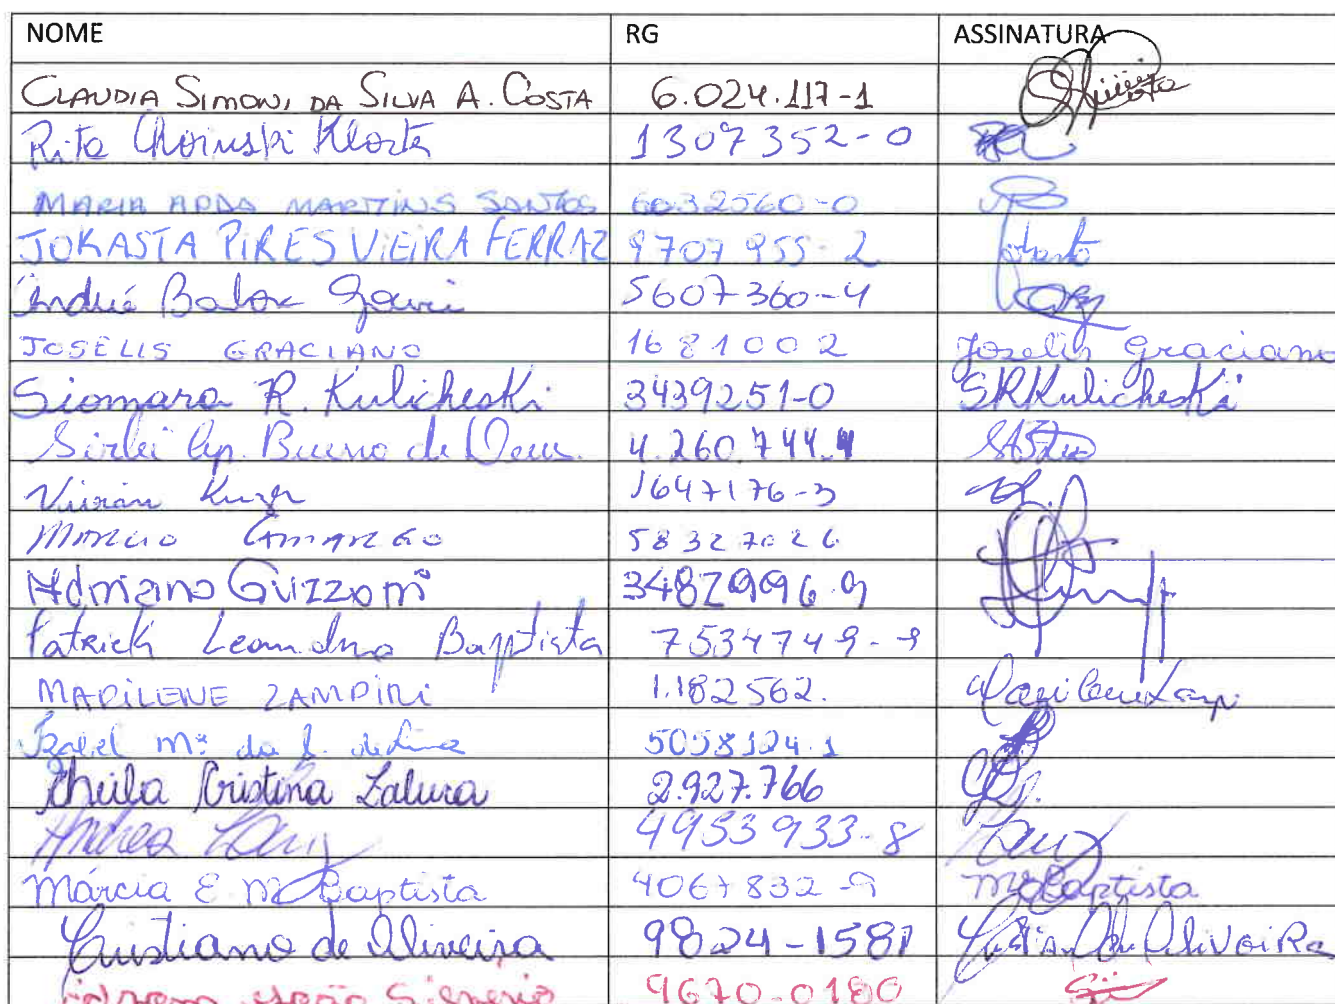 NOME RG ASSINATURA
CLAUDIA SIMONI DA SILVA A. COSTA 6.024.117-1
Rita Choinski Kloste 1307352-0
MARIA APDA MARTINS SANTOS 6032560-0
JOKASTA PIRES VIEIRA FERRAZ 9707955-2
André 5607360-4
JOSELIS GRACIANO 1681002 Joselis Graciano
Siomara R. Kulicheski 3439251-0 SRKulicheski
Sirlei Ap. Bueno de Deus. 4.260.744-4
Vivian 1647176-3
MARCIO CAMARGO 58327026
Adriano Guizzoni 34829996.9
Patrick Leandro Baptista 7534749-9
MARILENE ZAMPIRI 1.182562.
Izabel Mª da S. de Lima 5058124.1
Sheila Cristina Zaluca 2.927.766
Andrea 4953933-8
Márcia E. M. Baptista 4067832-9 Baptista
Cristiano de Oliveira 9824-1581 Cristiano de Oliveira
9670-0180